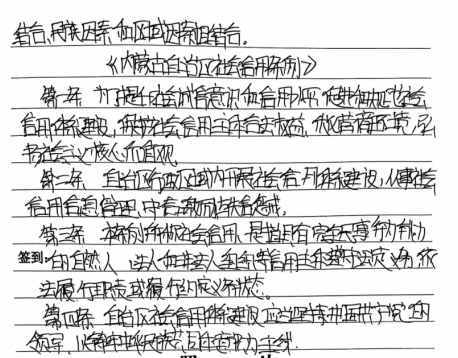 结合,民族因素和区域因素相结合。
《内蒙古自治区社会信用条例》
第一条 为了提高社会诚信意识和信用水平,促进和规范社会
信用体系建设,保护社会信用主体合法权益,优化营商环境,弘
扬社会主义核心价值观
第二条 自治区行政区域内开展社会信用体系建设,从事社会
信用信息管理,守信激励与失信惩戒,
第三条 本条例所称社会信用,是指具有完全民事行为能力
签到:的自然人、法人和非法人组织等信用主体遵守法定义务依
法履行职责或履行约定义务状态。
第四条 自治区社会信用体系建设应当坚持中国共产党的
领导,以铸牢中华民族共同体意识为主线.